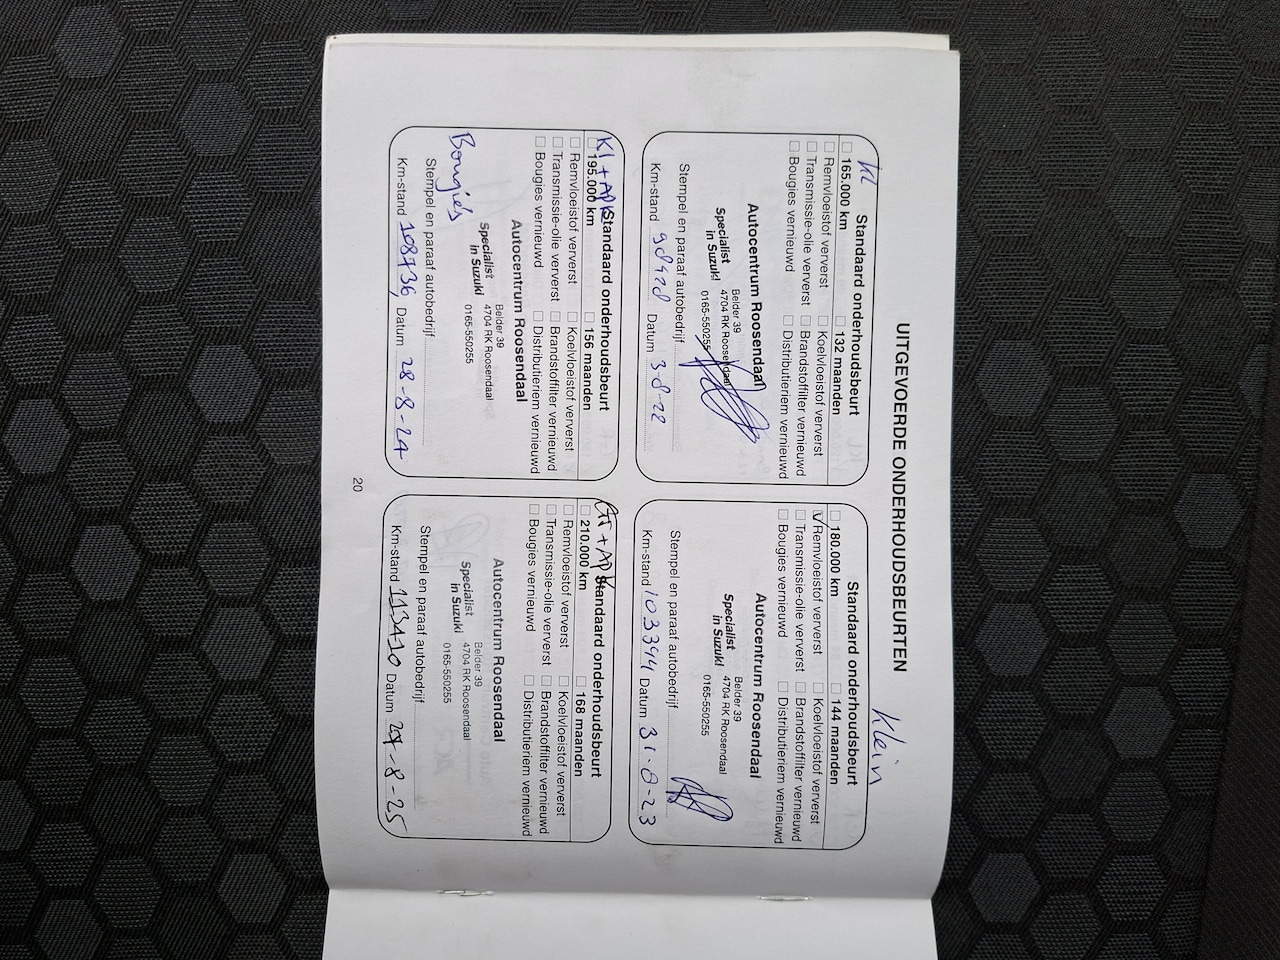 UITGEVOERDE ONDERHOUDSBEURTEN
Kl
Standaard onderhoudsbeurt
165.000 km 132 maanden
Remvloeistof ververst Koelvloeistof ververst
Transmissie-olie ververst Brandstoffilter vernieuwd
Bougies vernieuwd Distributieriem vernieuwd
Autocentrum Roosendaal
Specialist
in Suzuki
Belder 39
4704 RK Roosendaal
0165-550255
Stempel en paraaf autobedrijf
Km-stand Datum 3-8-22
Klein
Standaard onderhoudsbeurt
180.000 km 144 maanden
Remvloeistof ververst Koelvloeistof ververst
Transmissie-olie ververst Brandstoffilter vernieuwd
Bougies vernieuwd Distributieriem vernieuwd
Autocentrum Roosendaal
Specialist
in Suzuki
Belder 39
4704 RK Roosendaal
0165-550255
Stempel en paraaf autobedrijf
Km-stand 103394 Datum 31-8-23
Kl + APK
Standaard onderhoudsbeurt
195.000 km 156 maanden
Remvloeistof ververst Koelvloeistof ververst
Transmissie-olie ververst Brandstoffilter vernieuwd
Bougies vernieuwd Distributieriem vernieuwd
Autocentrum Roosendaal
Specialist
in Suzuki
Belder 39
4704 RK Roosendaal
0165-550255
Bougies
Stempel en paraaf autobedrijf
Km-stand 108736 Datum 28-8-24
+ APK
Standaard onderhoudsbeurt
210.000 km 168 maanden
Remvloeistof ververst Koelvloeistof ververst
Transmissie-olie ververst Brandstoffilter vernieuwd
Bougies vernieuwd Distributieriem vernieuwd
Autocentrum Roosendaal
Specialist
in Suzuki
Belder 39
4704 RK Roosendaal
0165-550255
Stempel en paraaf autobedrijf
Km-stand 113410 Datum 27-8-25
20